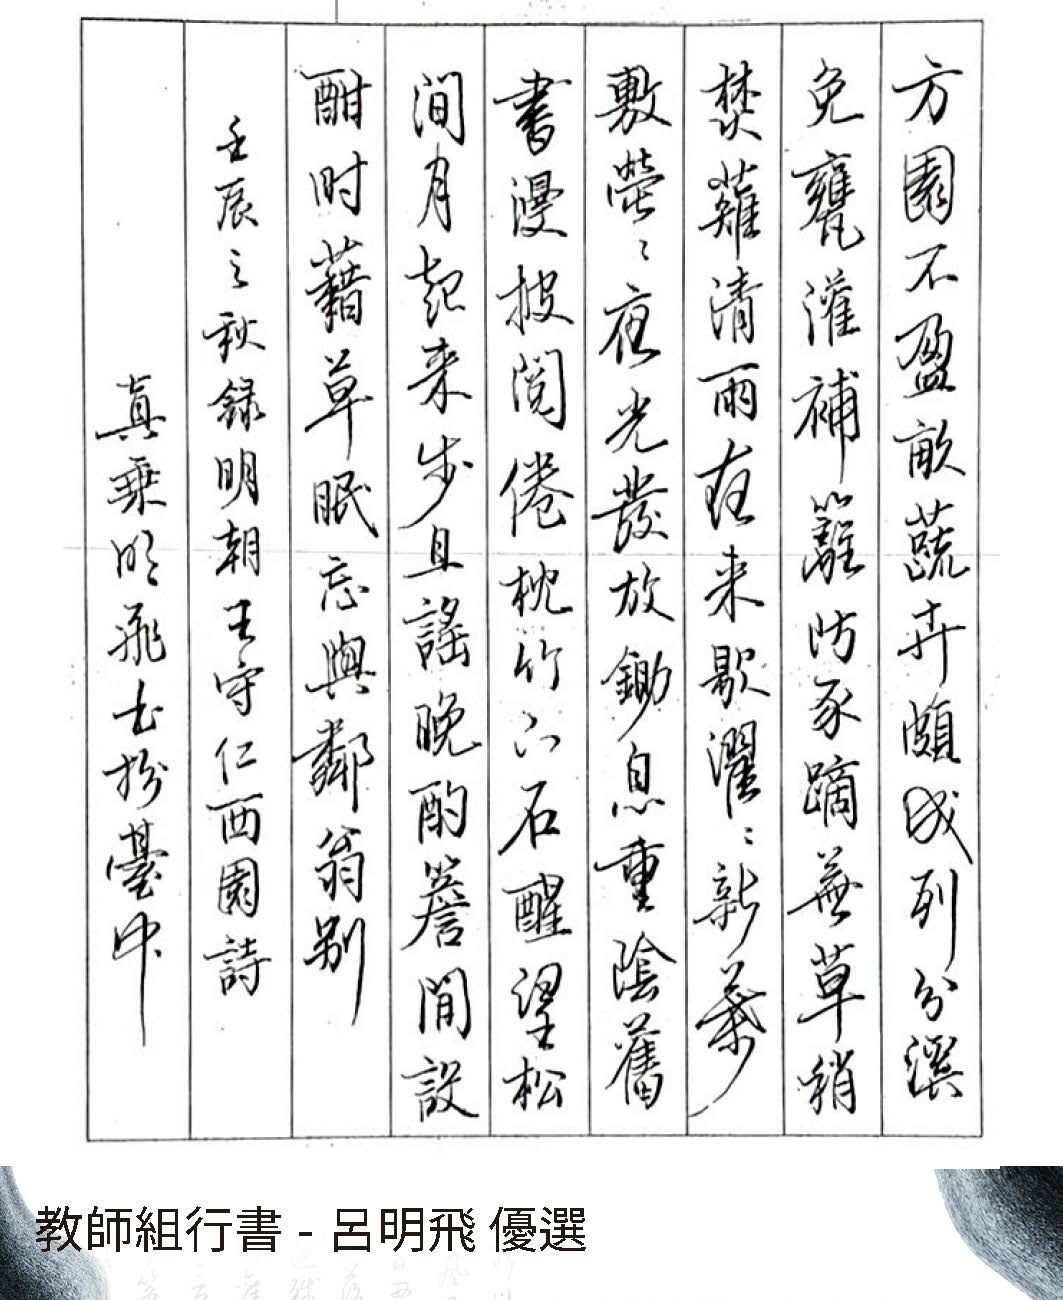 方園不盈畝蔬卉頗成列分溪
免甕灌補籬防豕蹢蕪草稍
焚薙清雨夜来歇濯〻新葉
敷熒〻夜光發放鋤息重陰舊
書漫披閱倦枕竹下石醒望松
间月起来步且謠晚酌簷間設
酣时藉草眠忘與鄰翁别
壬辰之秋録明朝王守仁西園詩
真乘明飛书於臺中
教師組行書 - 呂明飛 優選